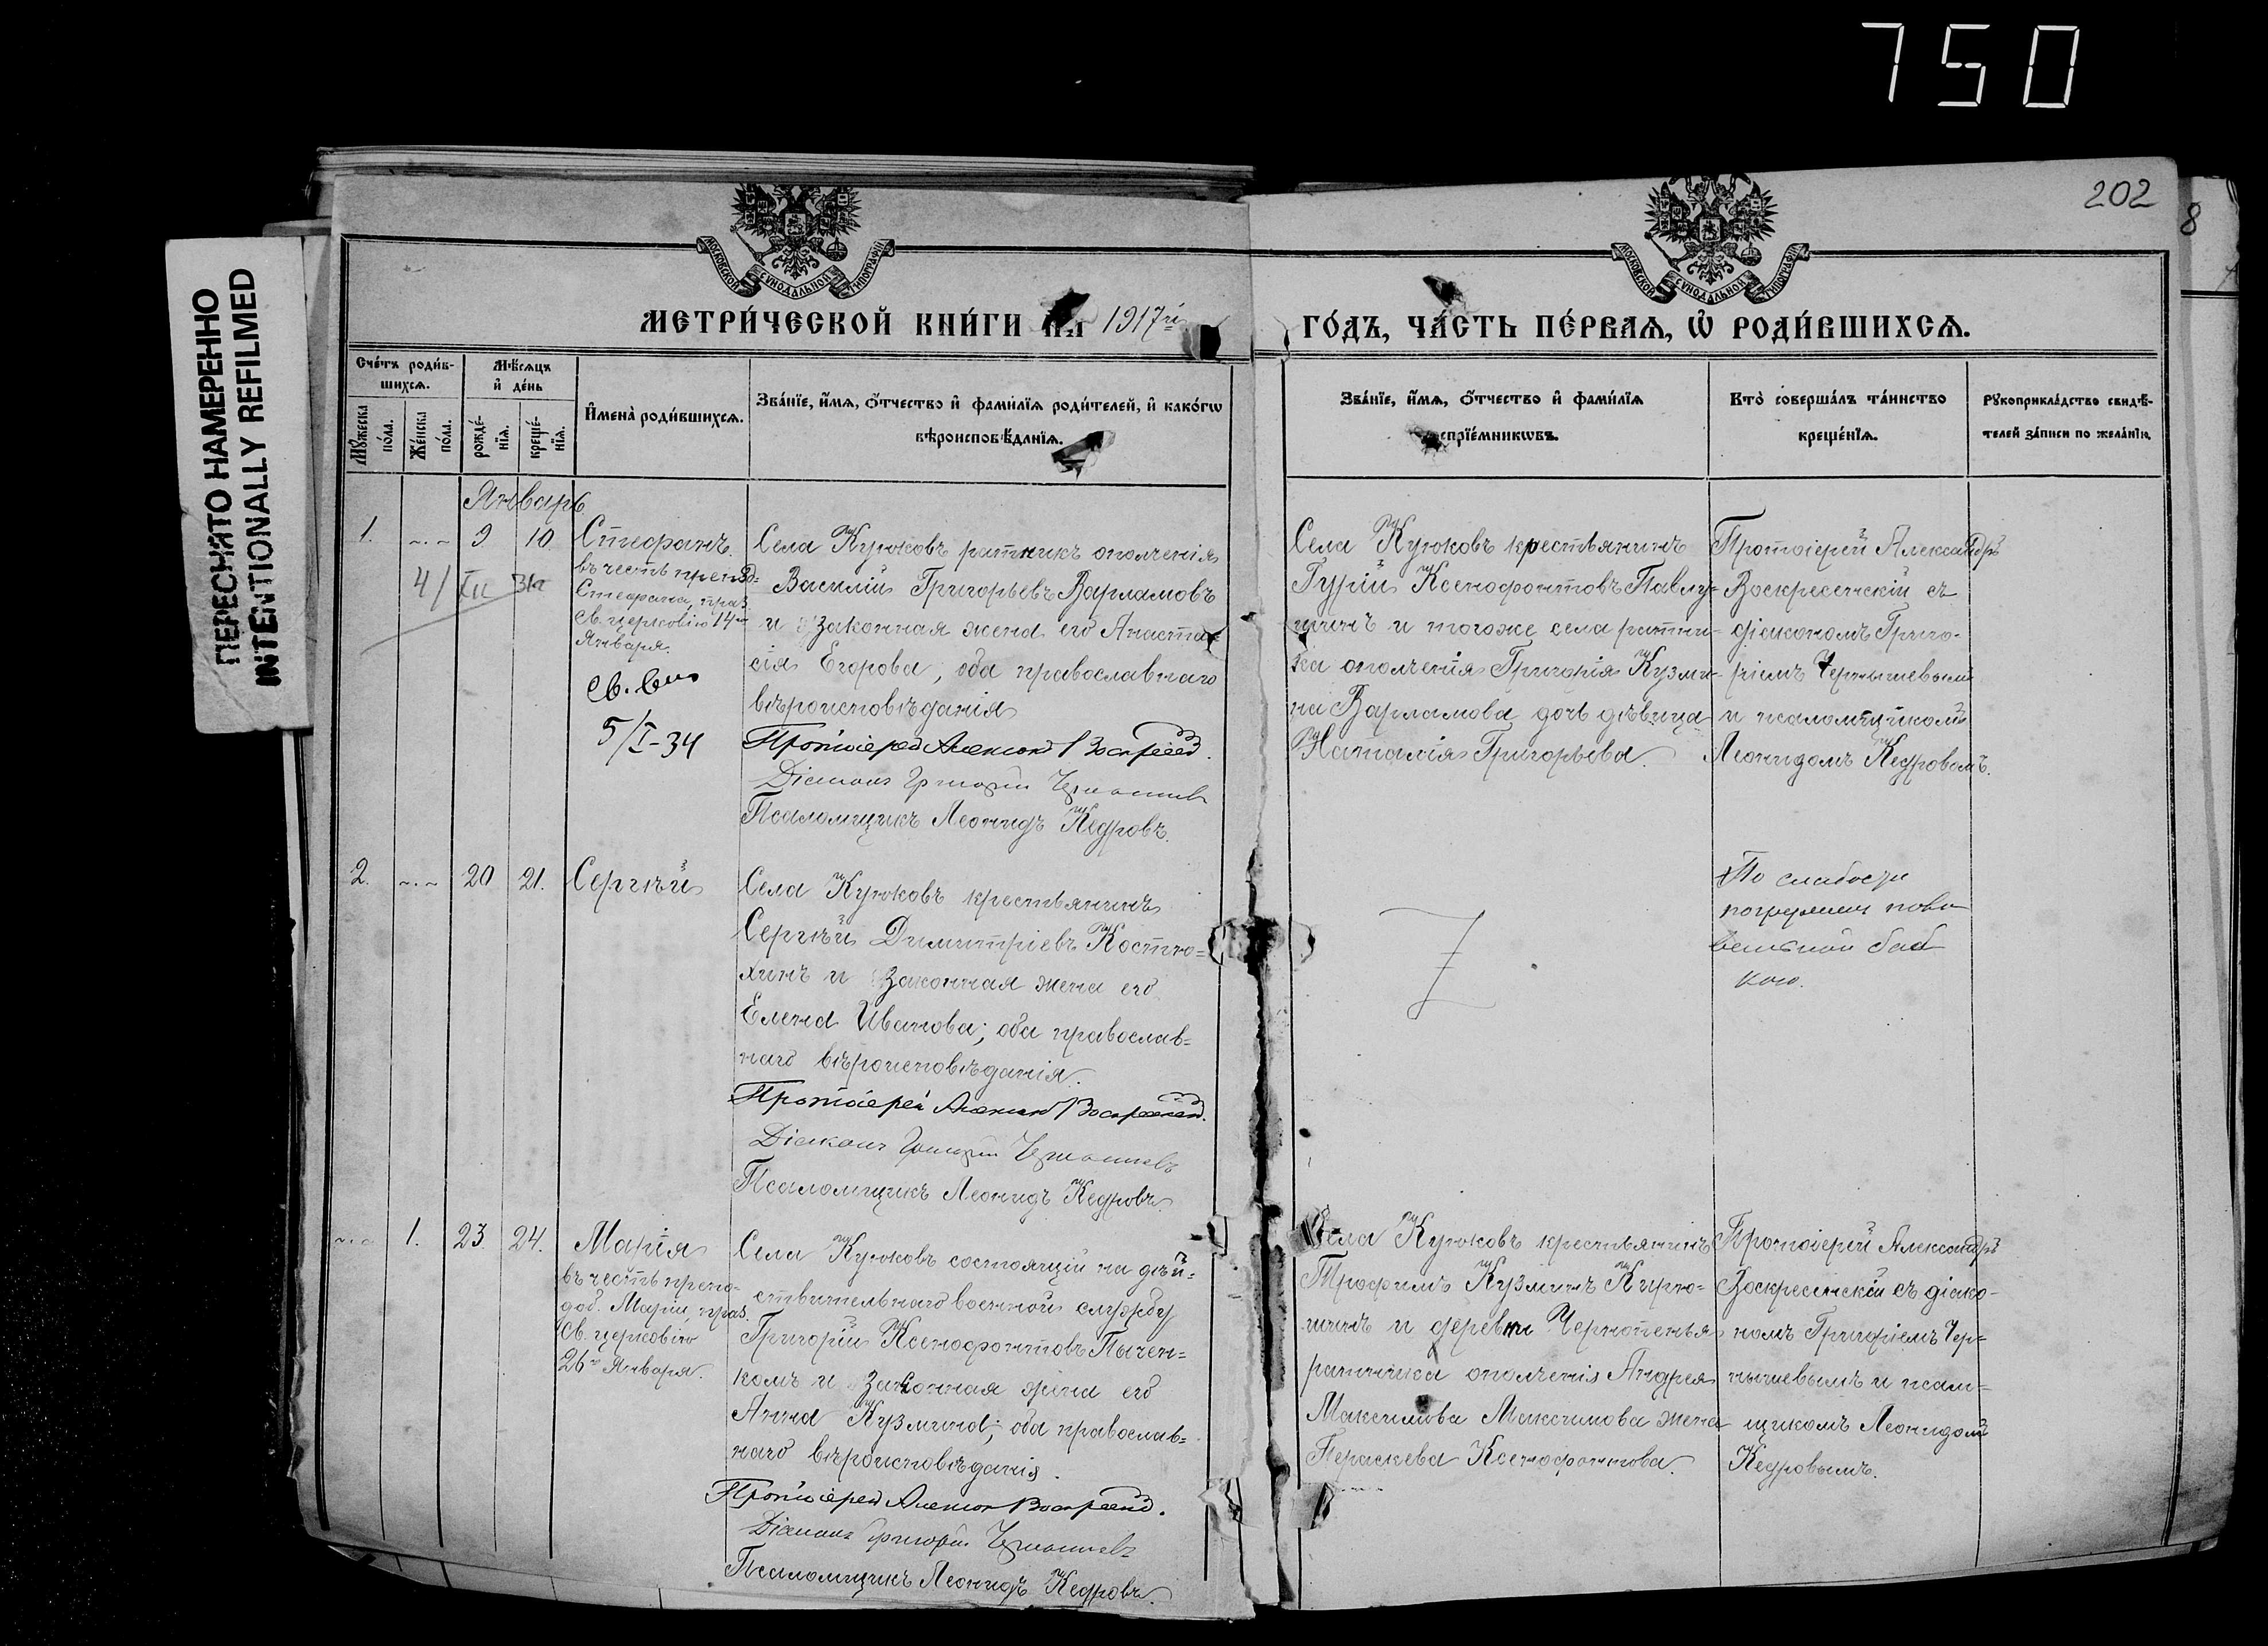 750
202
8
ПЕРЕСНЯТО НАМЕРЕННО
INTENTIONALLY REFILMED
МОСКОВСКОЙ СУНОДАЛЬНОЙ ТИПОГРАФІИ
МОСКОВСКОЙ СУНОДАЛЬНОЙ ТИПОГРАФІИ
МЕТРИ́ЧЕСКОЙ КНИ́ГИ НА 1917й
ГО́ДЪ, ЧА́СТЬ ПЕ́РВАѦ, Ѡ҆ РОДИ́ВШИХСѦ.
Сче́тъ роди́в-
шихсѧ.
Мꙋжеска по́ла.
Же́нска по́ла.
Мѣ́сѧцъ
и҆ де́нь
рожде́-
нїѧ.
креще́-
нїѧ.
И҆мена̀ роди́вшихсѧ.
Зва́нїе, и҆́мѧ, ѻ҆́тчество и҆ фами́лїѧ роди́телей, и҆ како́гѡ
вѣроисповѣ́данїѧ.
Зва́нїе, и҆́мѧ, ѻ҆́тчество и҆ фами́лїѧ
спрїе́мникѡвъ.
Кто̀ соверша́лъ та́инство
креще́нїѧ.
Рꙋкоприкла́дство свидѣ́-
телей за́писи по жела́нїю.
Январь
1. ~.~ 9 10.
Стефанъ.
въ честь препод=
Стефана, праз.
св. церковію 14го
Января.
5/I-34
Села Куюковъ ратникъ ополченія
Василій Григорьевъ Варламовъ
и законная жена его Анаста-
сія Егорова, оба православнаго
вѣроисповѣданія
Протоіерей Александ Воскресен.
Діаконъ Григорій Чернышевъ
Псаломщикъ Леонидъ Кедровъ.
Села Куюковъ крестьянинъ
Гурій Ксенофонтовъ Павлу-
шинъ и тогоже села ратни-
ка ополченія Григорія Кузми-
на Варламова дочь дѣвица
Наталія Григорьева.
Протоіерей Александръ
Воскресенскій съ
діакономъ Григо-
ріемъ Чернышевымъ
и псаломщикомъ
Леонидомъ Кедровымъ.
2. ~.~ 20 21.
Сергѣй
Села Куюковъ крестьянинъ
Сергѣй Димитріевъ Костю=
хинъ и законная жена его
Елена Иванова; оба православ=
наго вѣроисповѣданія.
Протоіерей Александ Воскресен.
Діаконъ Григорій Чернышевъ
Псаломщикъ Леонидъ Кедровъ
По слабости
погружен пови
вальной баб
кою.
~.~ 1. 23. 24.
Марія
въ честь препо-
доб. Маріи, праз.
св. церковію
26го Января.
Села Куюковъ состоящій на дѣй=
ствительнаго военной службу
Григорій Ксенофонтовъ Пычен=
комъ и законная жена его
Анна Кузмина; оба православ=
наго вѣроисповѣданія.
Протоіерей Александ Воскресен.
Діаконъ Григорій Чернышевъ
Псаломщикъ Леонидъ Кедровъ.
Села Куюковъ крестьянинъ
Трофимъ Кузминъ Кирю-
шинъ и деревни Чернопенья
ратника ополченія Андрея
Максимова Максимова жена
Параскева Ксенофонтова.
Протоіерей Александръ
Воскресенскій съ діако-
номъ Григоріемъ Чер=
нышевымъ и псалм=
щикомъ Леонидомъ
Кедровымъ.